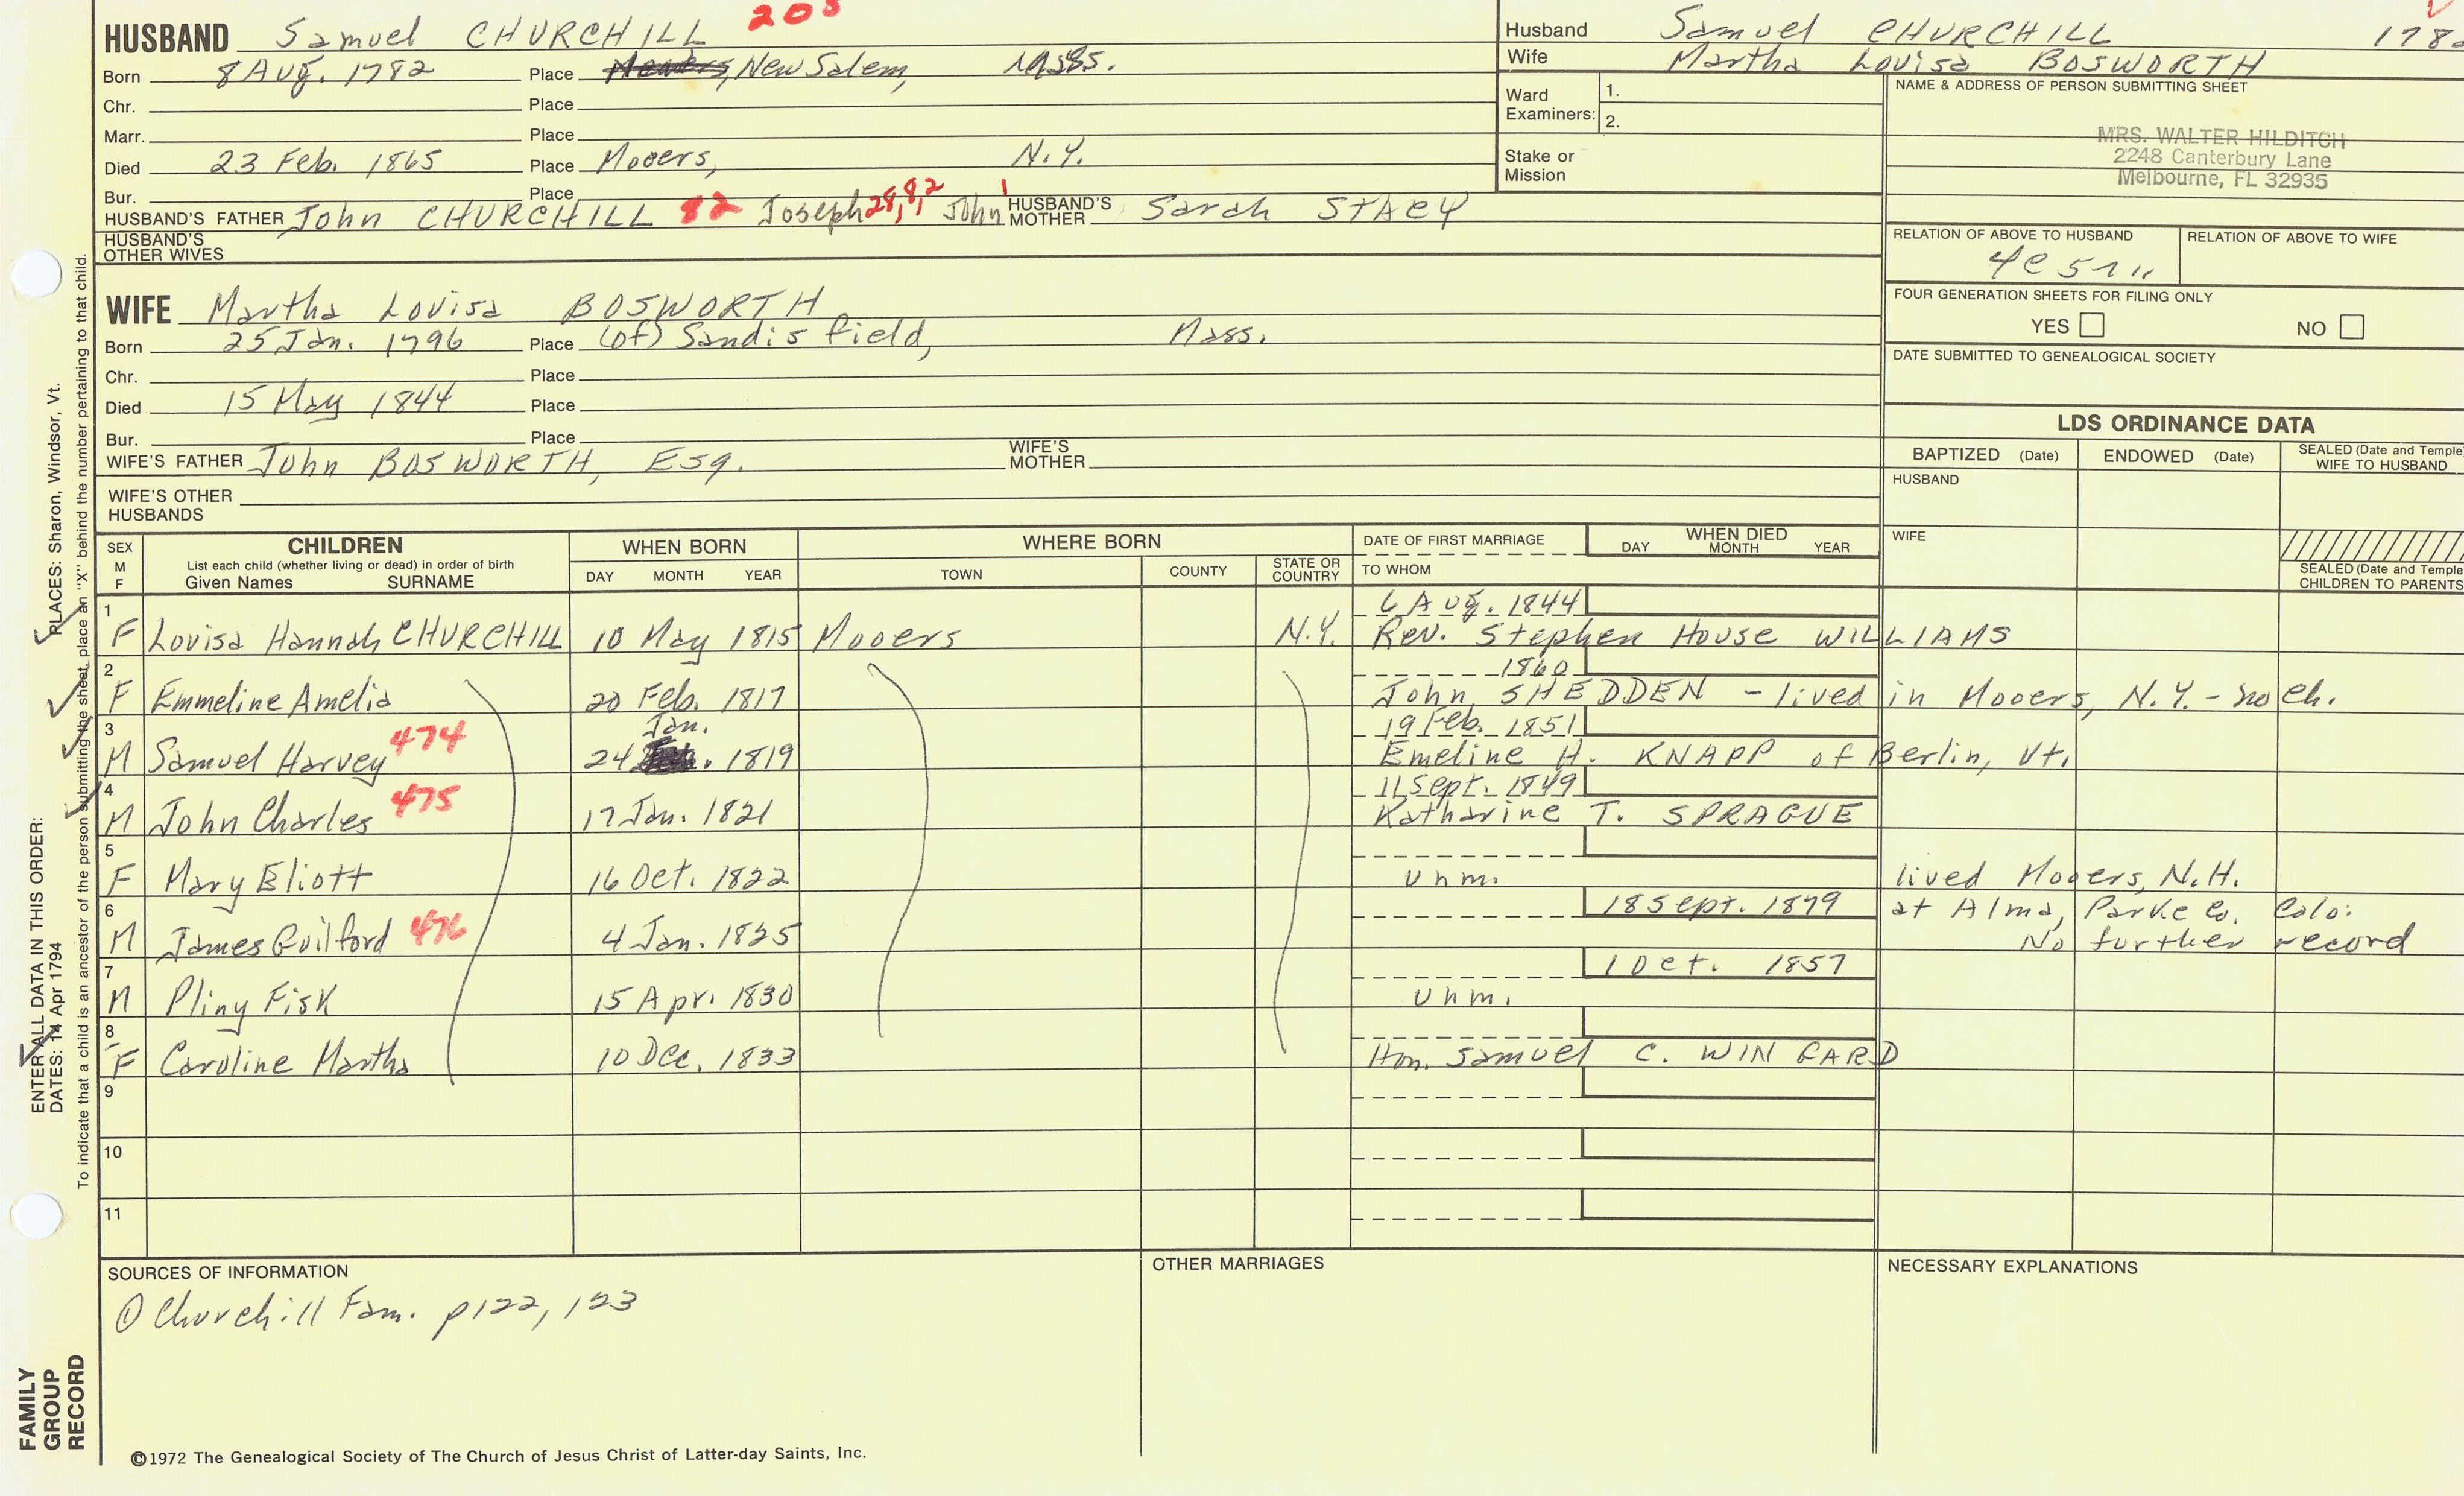 HUSBAND Samuel CHURCHILL 208
Born 8 Aug. 1782 Place New Salem, Mass.
Chr. Place
Marr. Place
Died 23 Feb. 1865 Place Mooers, N.Y.
Bur. Place
HUSBAND'S FATHER John CHURCHILL 82 Joseph 28,8,2 John 1 HUSBAND'S MOTHER Sarah STACY
HUSBAND'S OTHER WIVES
WIFE Martha Lovisa BOSWORTH
Born 25 Jan. 1796 Place (of) Sandisfield, Mass.
Chr. Place
Died 15 May 1844 Place
Bur. Place
WIFE'S FATHER John BOSWORTH, Esq. WIFE'S MOTHER
WIFE'S OTHER HUSBANDS
Husband Samuel CHURCHILL 178
Wife Martha Lovisa BOSWORTH
Ward Examiners: 1.
2.
Stake or Mission
NAME & ADDRESS OF PERSON SUBMITTING SHEET
MRS. WALTER HILDITCH
2248 Canterbury Lane
Melbourne, FL 32935
RELATION OF ABOVE TO HUSBAND RELATION OF ABOVE TO WIFE
FOUR GENERATION SHEETS FOR FILING ONLY
YES NO
DATE SUBMITTED TO GENEALOGICAL SOCIETY
LDS ORDINANCE DATA
BAPTIZED (Date) ENDOWED (Date) SEALED (Date and Temple) WIFE TO HUSBAND
HUSBAND
WIFE
SEALED (Date and Temple) CHILDREN TO PARENTS
SEX M F
CHILDREN
List each child (whether living or dead) in order of birth
Given Names SURNAME
WHEN BORN
DAY MONTH YEAR
WHERE BORN
TOWN COUNTY STATE OR COUNTRY
DATE OF FIRST MARRIAGE
TO WHOM
WHEN DIED
DAY MONTH YEAR
6 Aug. 1844
1 F Lovisa Hannah CHURCHILL 10 May 1815 Mooers N.Y. Rev. Stephen House WILLIAMS
1860
2 F Emmeline Amelia 20 Feb. 1817 John SHEDDEN - lived in Mooers, N.Y. - no ch.
19 Feb. 1851
3 M Samuel Harvey 474 24 Jan. 1819 Emeline H. KNAPP of Berlin, Vt.
11 Sept. 1849
4 M John Charles 475 17 Jan. 1821 Katharine T. SPRAGUE
5 F Mary Eliott 16 Oct. 1822 unm. lived Mooers, N.H.
18 Sept. 1879 at Alma, Parke Co. Colo.
6 M James Guilford 476 4 Jan. 1825 No further record
1 Oct. 1857
7 M Pliny Fisk 15 Apr. 1830 unm.
8 F Caroline Martha 10 Dec. 1833 Hon. Samuel C. WINGARD
9
10
11
SOURCES OF INFORMATION
① Churchill Fam. p122, 123
OTHER MARRIAGES
NECESSARY EXPLANATIONS
©1972 The Genealogical Society of The Church of Jesus Christ of Latter-day Saints, Inc.
FAMILY GROUP RECORD
ENTER ALL DATA IN THIS ORDER:
DATES: 14 Apr 1794 PLACES: Sharon, Windsor, Vt.
To indicate that a child is an ancestor of the person submitting the sheet, place an "X" behind the number pertaining to that child.